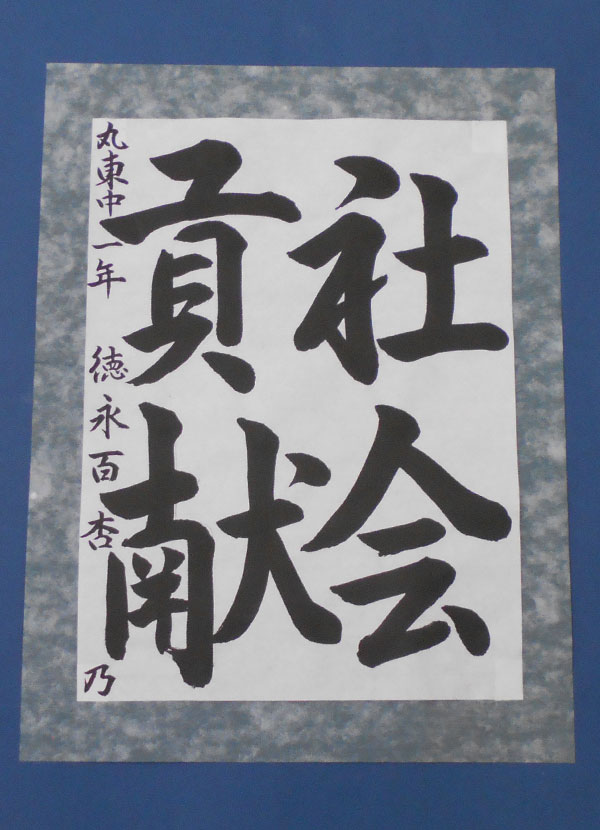 社会
貢献
丸東中一年 徳永百杏乃